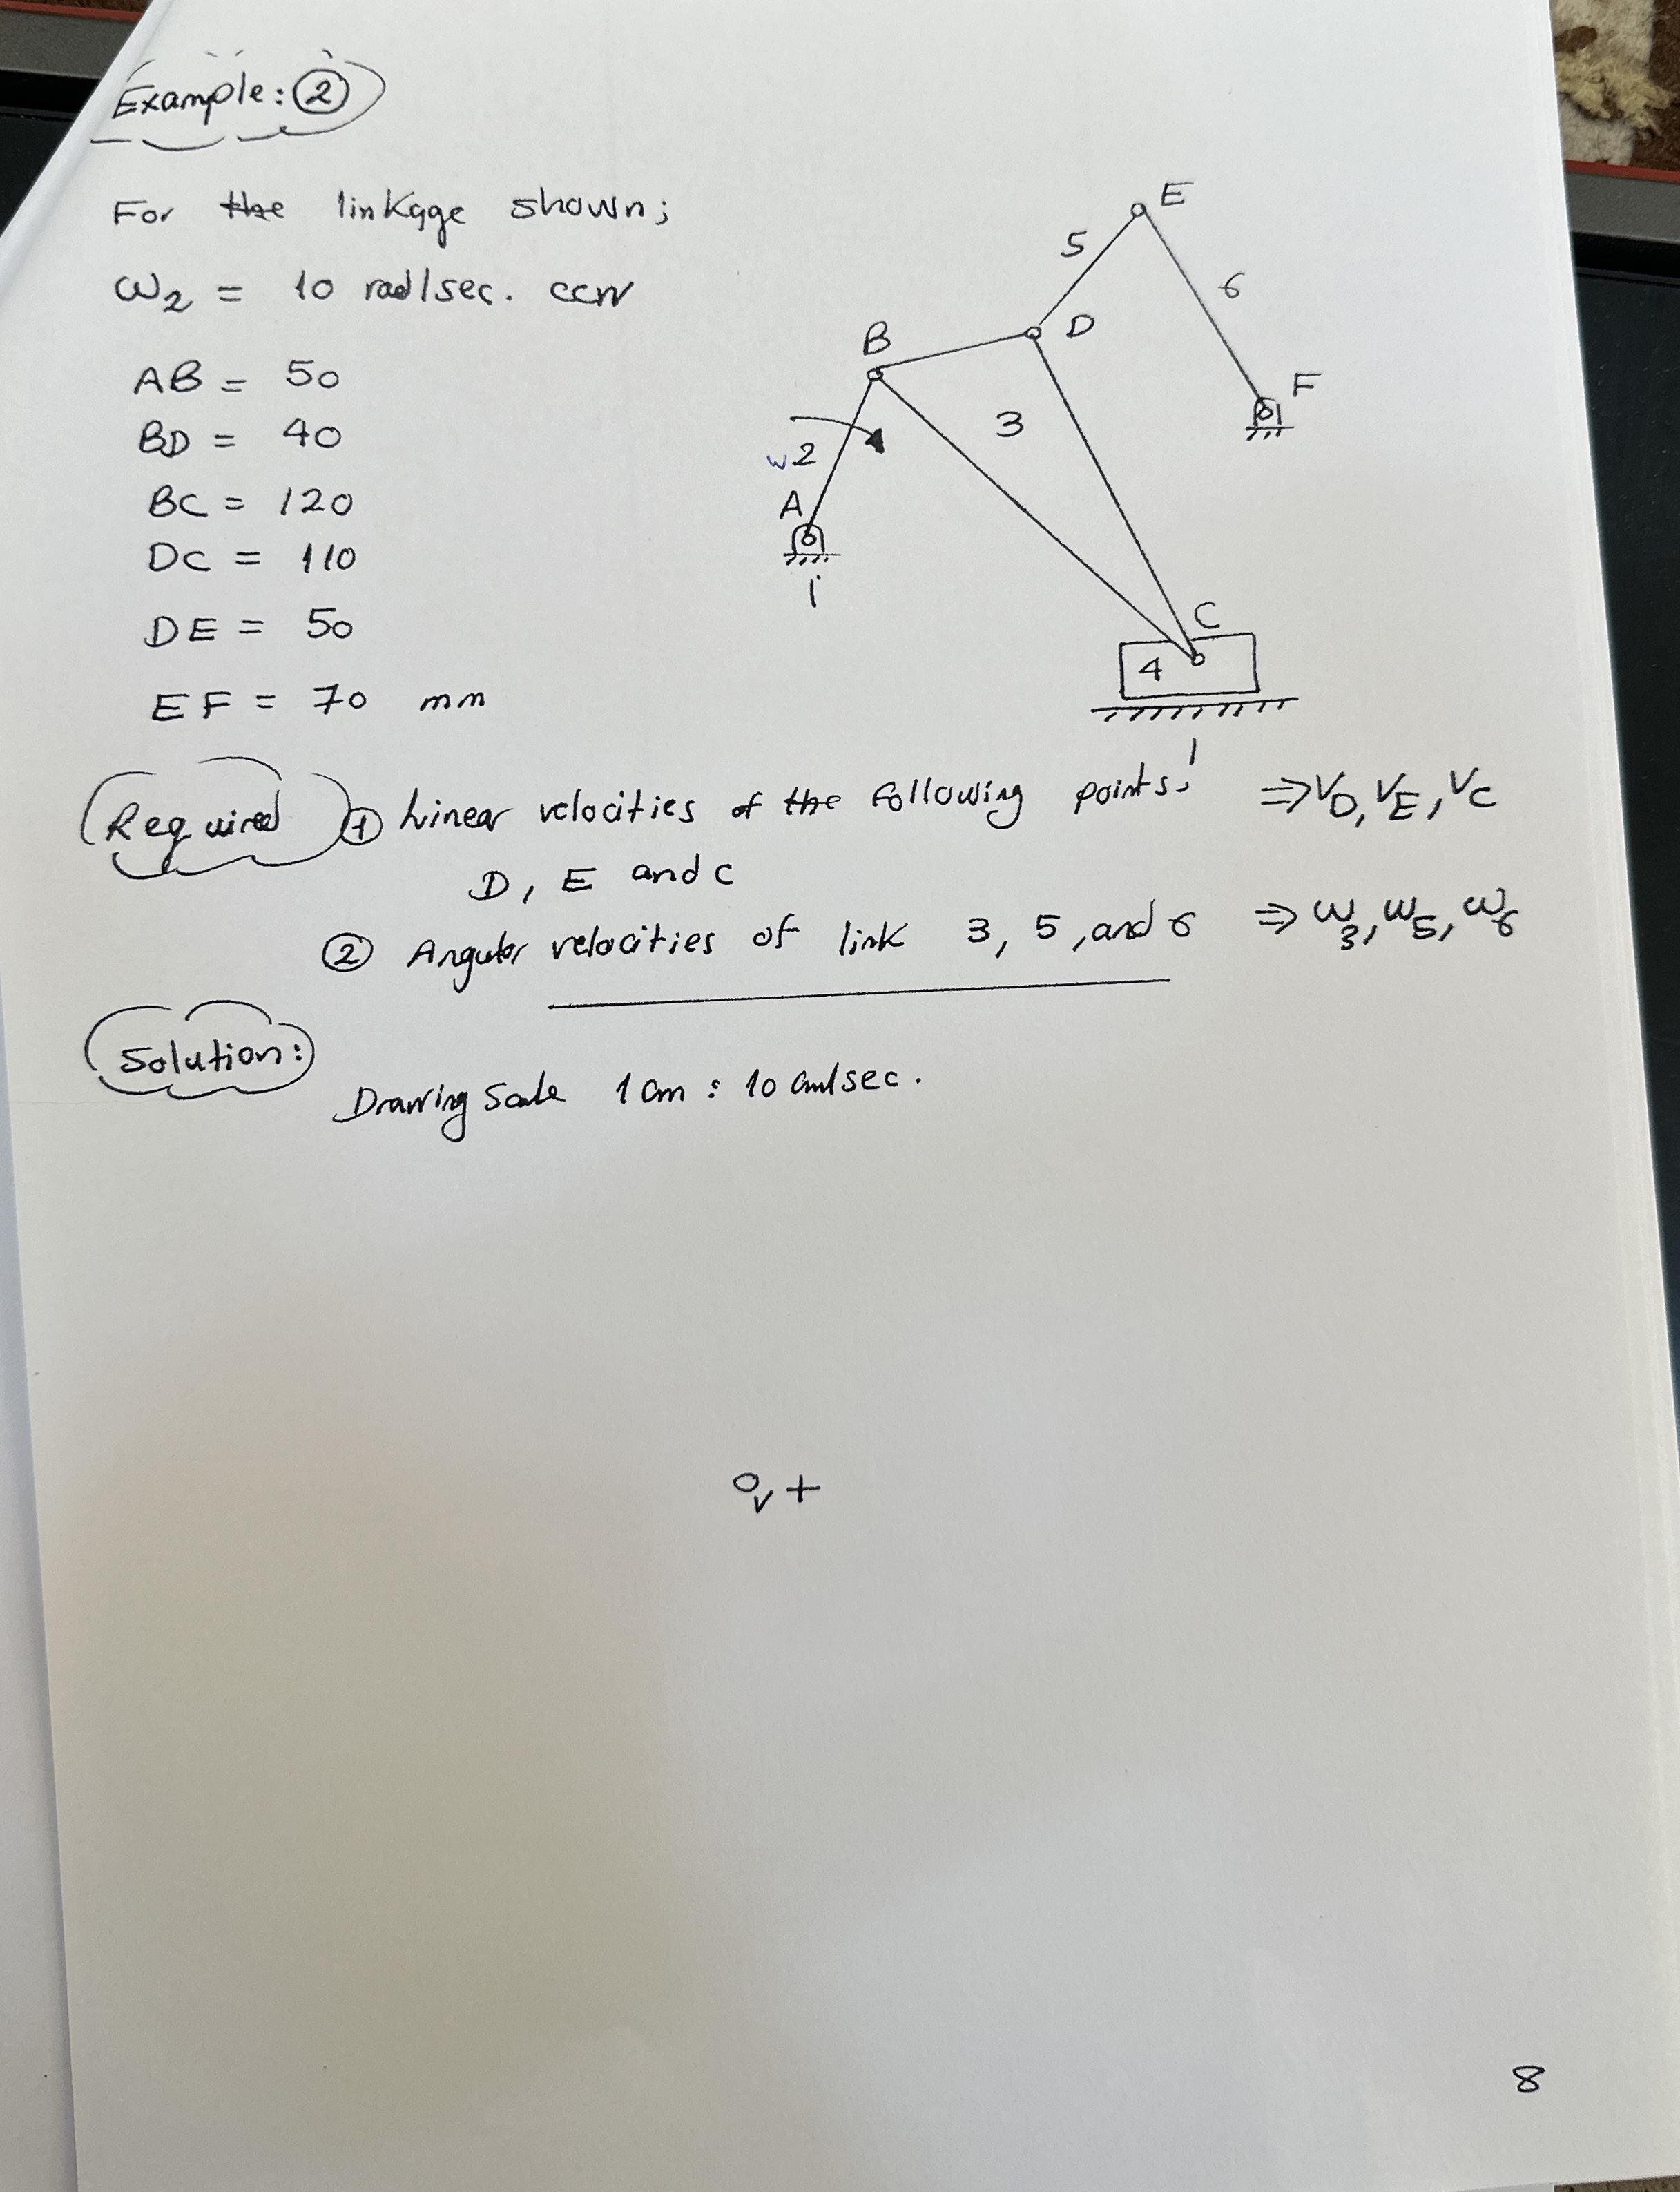 Example: ②
For the linkage shown;
ω2 = 10 rad/sec. ccw
AB = 50
BD = 40
BC = 120
DC = 110
DE = 50
EF = 70 mm
E
5
6
B
D
F
3
ω2
A
1
C
4
1
Required ① Linear velocities of the following points: ⇒ VD, VE, VC
D, E and C
② Angular velocities of link 3, 5, and 6 ⇒ ω3, ω5, ω6
Solution:
Drawing Scale 1 cm : 10 cm/sec.
Ov +
8